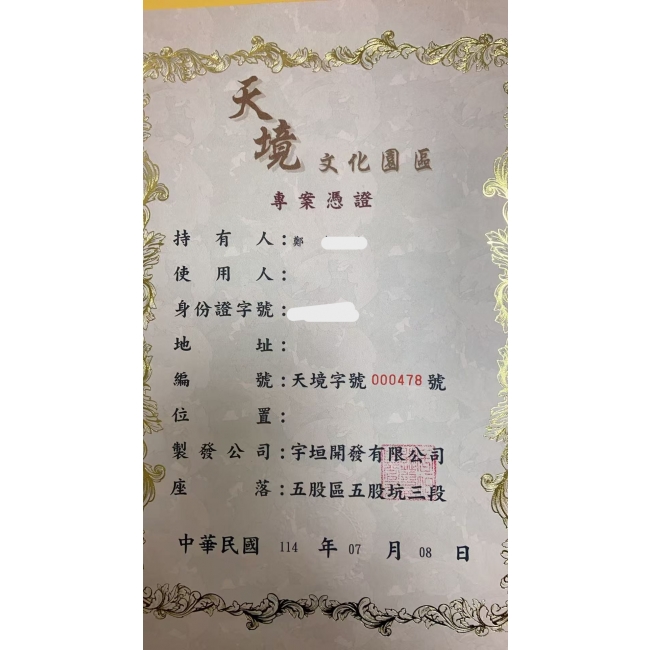 天境文化園區
專案憑證
持有人：鄭
使用人：
身份證字號：
地址：
編號：天境字號000478號
位置：
製發公司：宇垣開發有限公司
座落：五股區五股坑三段
中華民國 114 年 07 月 08 日